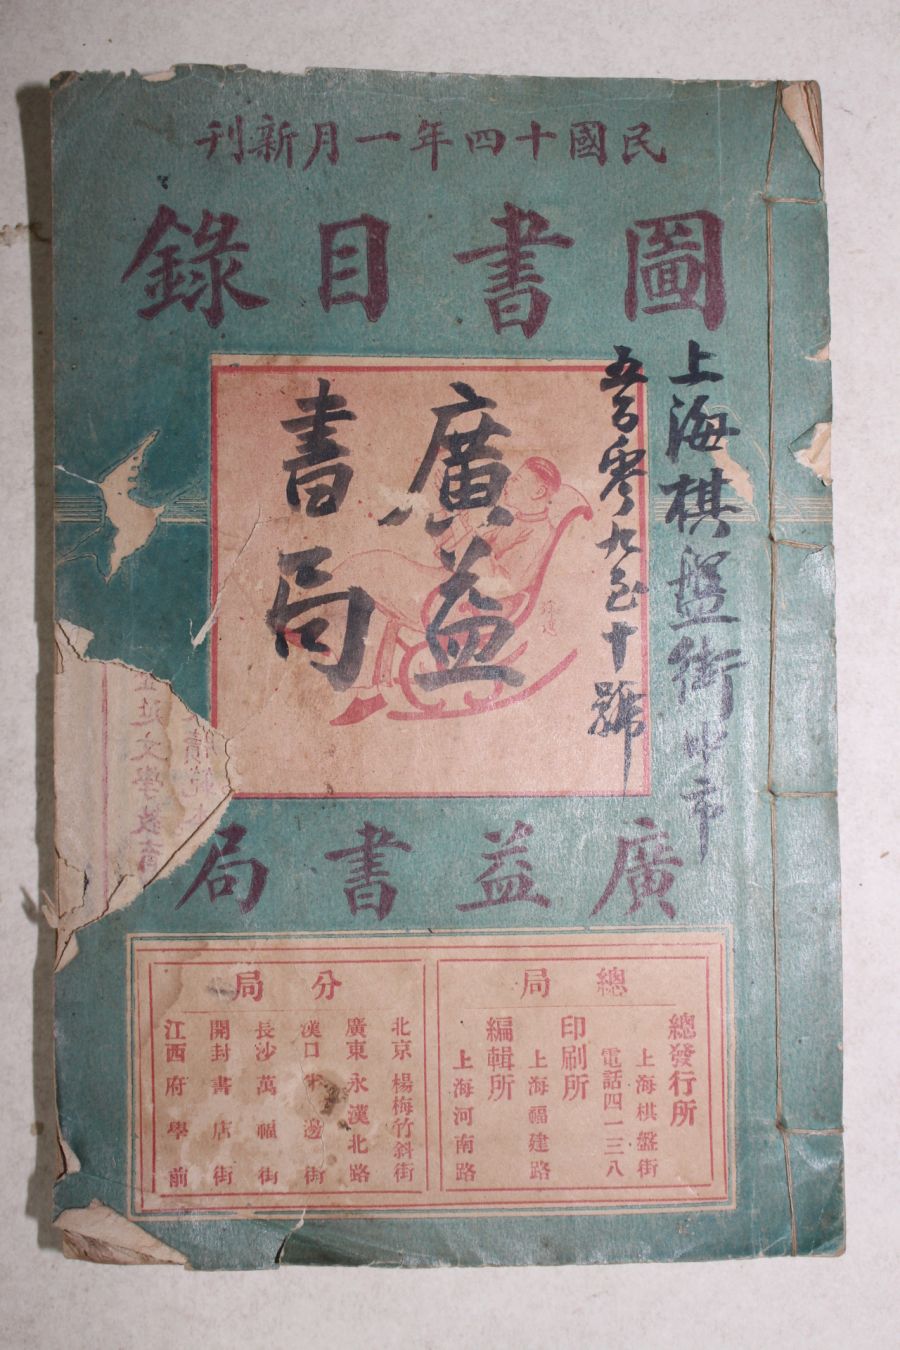 民國十四年一月新刊
圖書目錄
上海棋盤街中市
五百零九至十號
廣益
書局
廣益書局
總局
總發行所
上海棋盤街
電話四一三八
印刷所
上海福建路
編輯所
上海河南路
分局
北京楊梅竹斜街
廣東永漢北路
漢口半邊街
長沙萬福街
開封書店街
江西府學前
文學教育